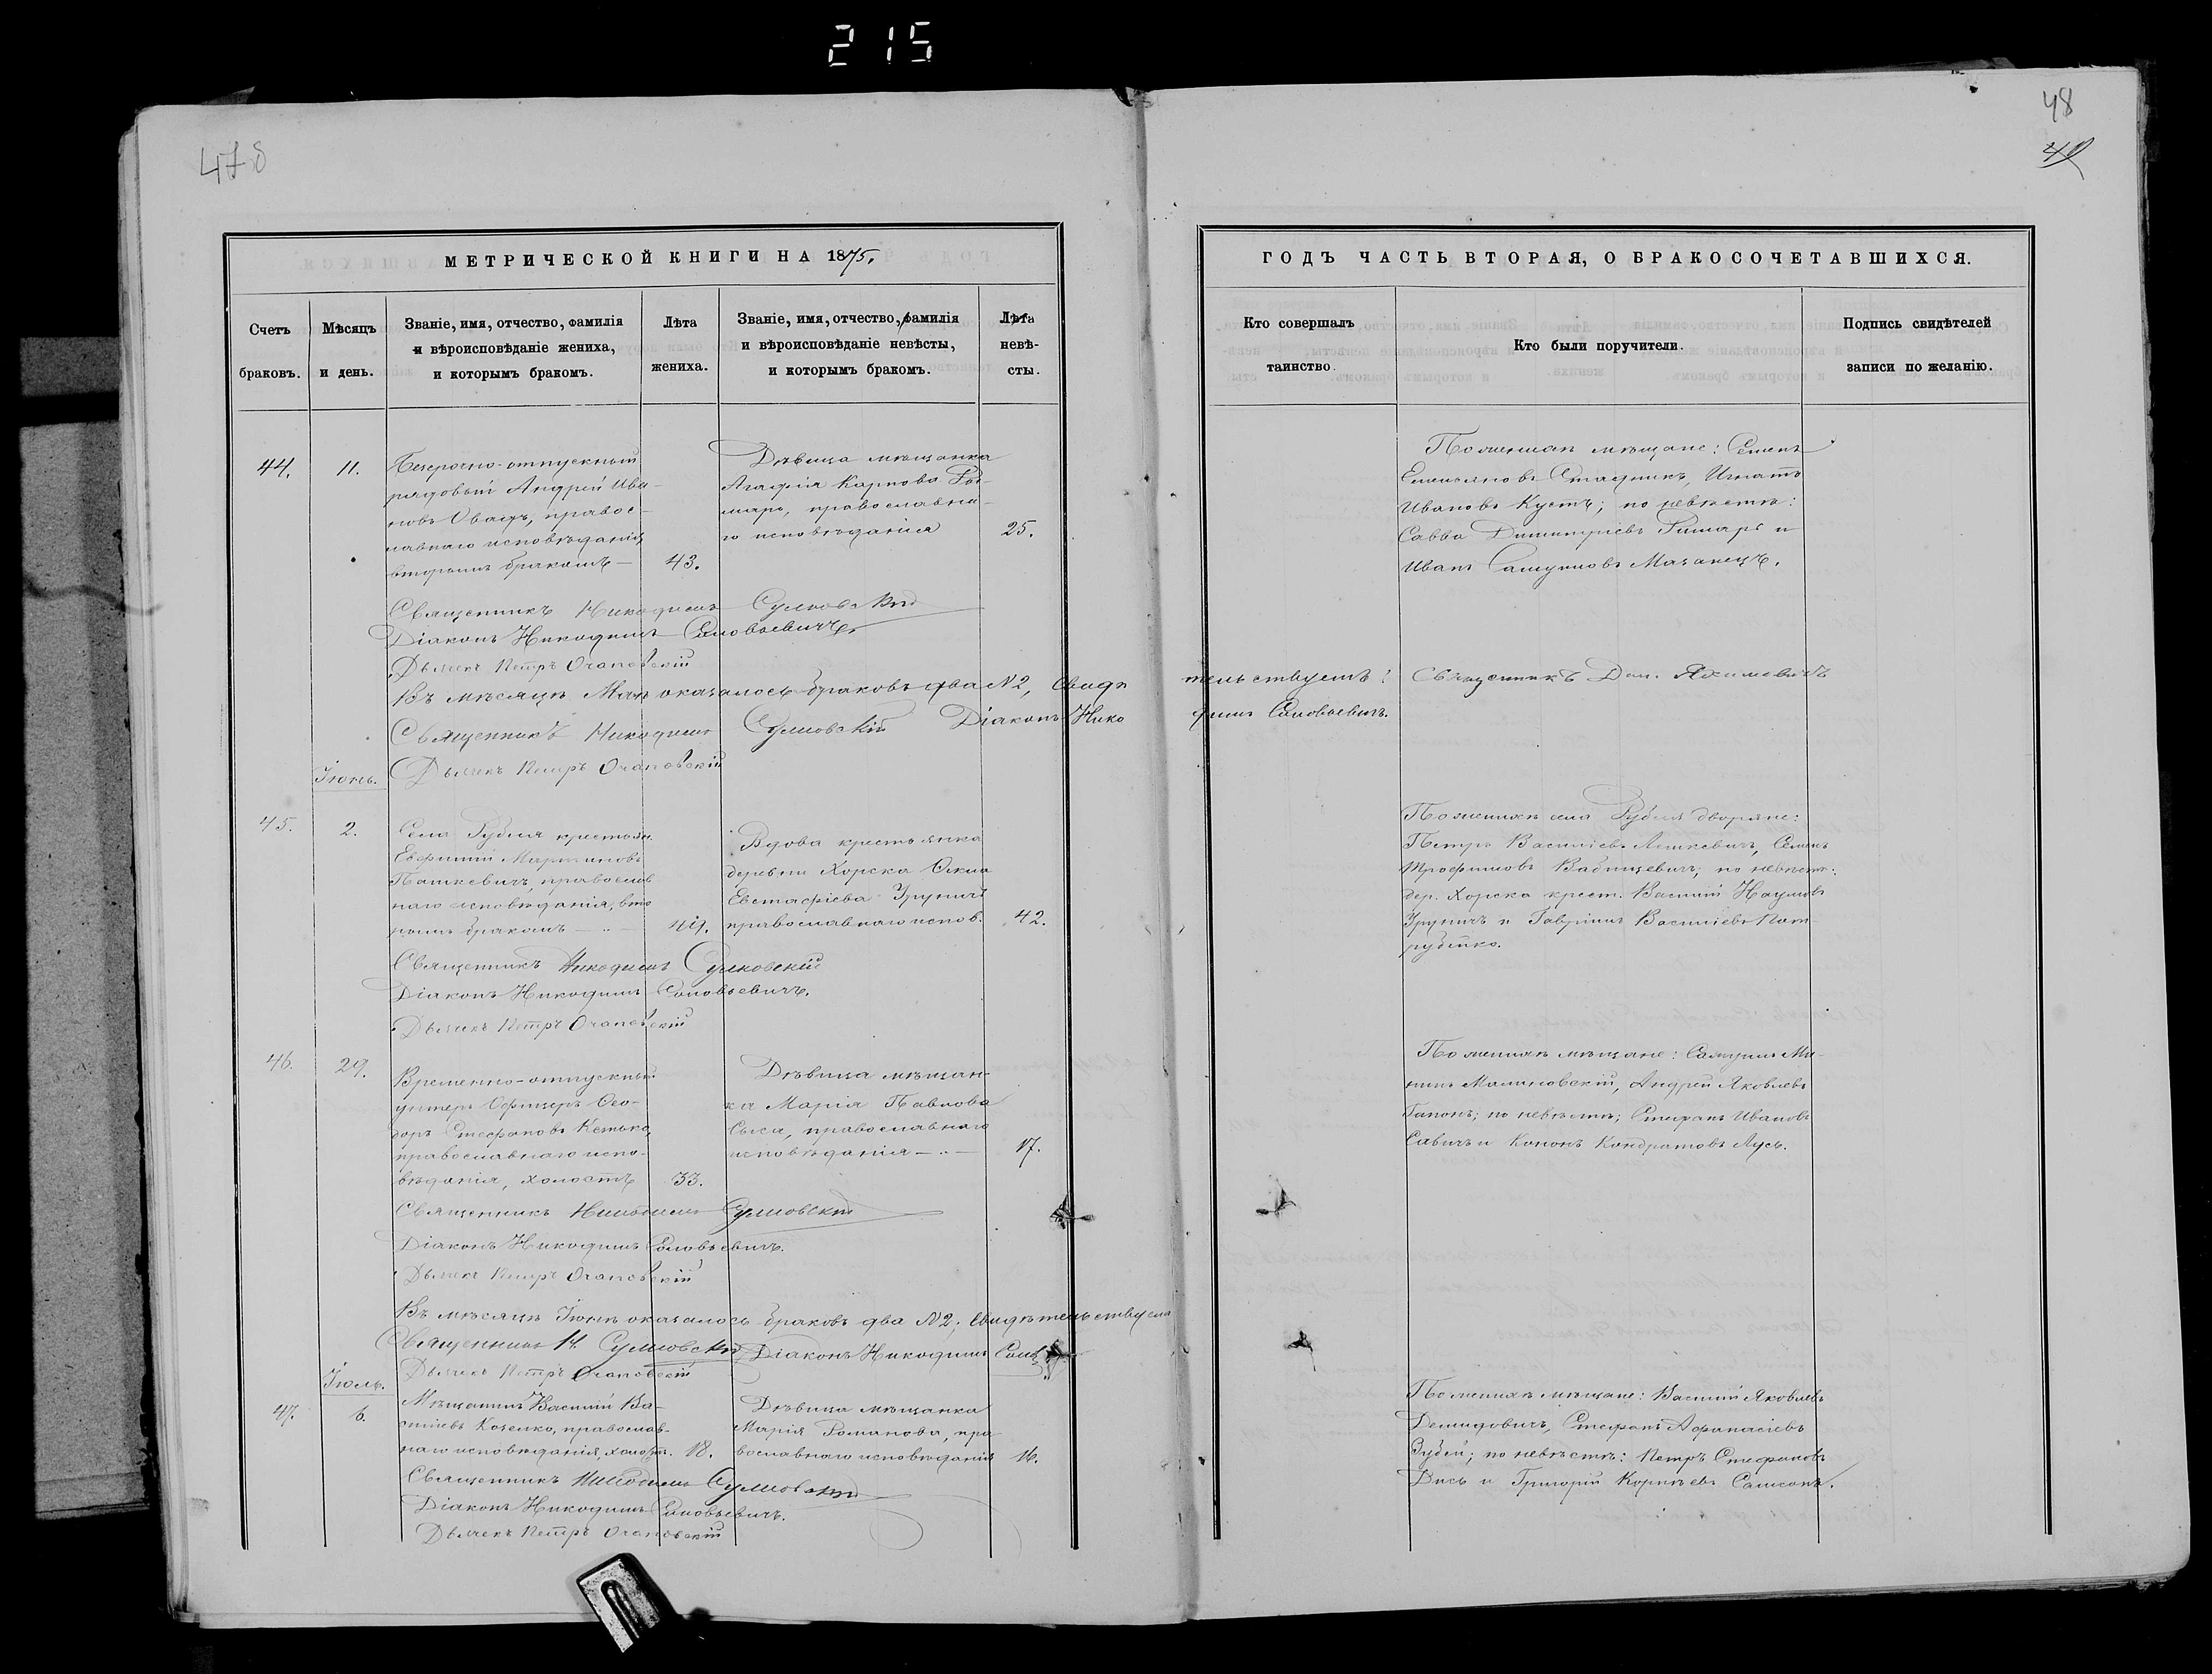 215
478
48
49
МЕТРИЧЕСКОЙ КНИГИ НА 1875.
Счетъ браковъ.
Мѣсяцъ и день.
Званіе, имя, отчество, фамилія
и вѣроисповѣданіе жениха,
и которымъ бракомъ.
Лѣта жениха.
Званіе, имя, отчество, фамилія
и вѣроисповѣданіе невѣсты,
и которымъ бракомъ.
Лѣта невѣ-
сты.
44.
11.
Безсрочно-отпускный
рядовый Андрей Ива-
новъ правос-
лавнаго исповѣданія,
вторымъ бракомъ —
43.
Дѣвица мѣщанка
Агафія Карпова
православна-
го исповѣданія
25.
Священникъ Никодимъ Сулковскій
Діаконъ Никодимъ Соловьевичъ.
Дьячекъ Петръ
Въ мѣсяцѣ Маѣ оказалось браковъ два №2, Свидѣ
Священникъ Никодимъ Сулковскій Діаконъ Нико
Іюнь.
Дьячекъ Петръ
45.
2.
Села Рубля крестьян.
Евфимій Мартиновъ
Пашкевичъ, православ
наго исповѣданія, вто
рымъ бракомъ —
49.
Вдова крестьянка
деревни Хорска
Евстафіева
православнаго испов.
42.
Священникъ Никодимъ Сулковскій
Діаконъ Никодимъ Соловьевичъ.
Дьячекъ Петръ
46.
29.
Временно-отпускный
унтеръ Офицеръ Ѳео-
доръ Стефановъ
православнаго испо-
вѣданія, холостъ
33.
Дѣвица мѣщан-
ка Марія Павлова
православнаго
исповѣданія —
17.
Священникъ Никодимъ Сулковскій
Діаконъ Никодимъ Соловьевичъ.
Дьячекъ Петръ
Въ мѣсяцѣ Іюнѣ оказалось браковъ два №2; Свидѣтельствуемъ
Священникъ Н. Сулковскій Діаконъ Никодимъ
Дьячекъ Петръ
Іюль.
47.
6.
Мѣщанинъ Василій Ва-
силіевъ Козелко, православ-
наго исповѣданія, холостъ.
18.
Дѣвица мѣщанка
Марія Романова, пра
вославнаго исповѣданія
16.
Священникъ Никодимъ Сулковскій
Діаконъ Никодимъ Соловьевичъ.
Дьячекъ Петръ
ГОДЪ ЧАСТЬ ВТОРАЯ, О БРАКОСОЧЕТАВШИХСЯ.
Кто совершалъ
таинство.
Кто были поручители.
Подпись свидѣтелей
записи по желанію.
По женихѣ мѣщане: Семенъ
Емельяновъ Стадникъ, Игнатъ
Ивановъ Кустъ; по невѣстѣ:
Савва Димитріевъ и
Иванъ Самуиловъ
тельствуемъ: Священникъ
димъ Соловьевичъ.
По женихѣ села Рубля дворяне:
Петръ Василіевъ Семенъ
Трофимовъ по невѣстѣ:
дер. Хорска крест. Василій Наумовъ
и Гавріилъ Василіевъ Пот-
рубейко.
По женихѣ мѣщане: Самуилъ
Малиновскій, Андрей Яковлевъ
Гапонъ; по невѣстѣ; Стефанъ Ивановъ
Савичъ и Кононъ Кондратовъ Лусь.
По женихѣ мѣщане: Василій Яковлевъ
Демидовичъ, Стефанъ Афанасіевъ
Зубей; по невѣстѣ: Петръ Стефановъ
и Григорій Корнѣевъ Самсонъ.